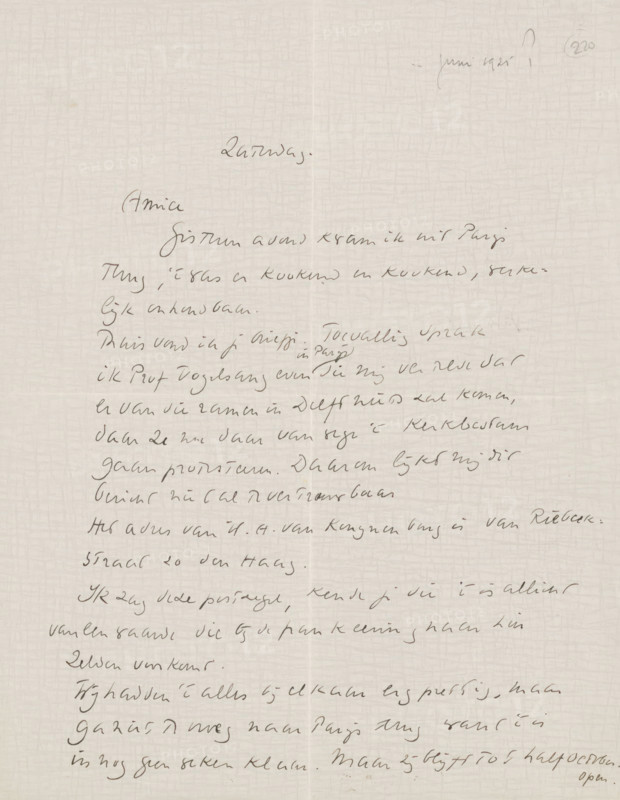 .. juni 1925 ?
220
Zaterdag.
Amice
Gisteren avond kwam ik uit Parijs
terug, 't was er kookend en kookend, werke-
lijk onhoudbaar.
Thuis vond ik je briefje. Toevallig sprak
in Parijs
ik Prof Vogelsang even die mij vertelde dat
er van die ramen in Delft niets zal komen,
daar ze nu daar van wege 't Kerkbestuur
gaan protesteeren. Daarom lijkt mij dit
bericht niet al te vertrouwbaar
Het adres van H. H. van Konijnenburg is van Riebeek-
straat 20 den Haag.
Ik zag deze postzegel, kende je die 't is allicht
van een waarde die bij de frankeering naar hier
zelden voorkomt.
Wij hadden 't alles bij elkaar erg prettig, maar
ga niet te vroeg naar Parijs terug want 't is
nog geen zeken klaar. Maar zij blijft tot half october
open.